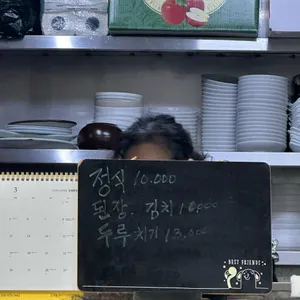 3
정식 10.000
된장. 김치 10,000
두루치기 13,000
BEST FRIENDS